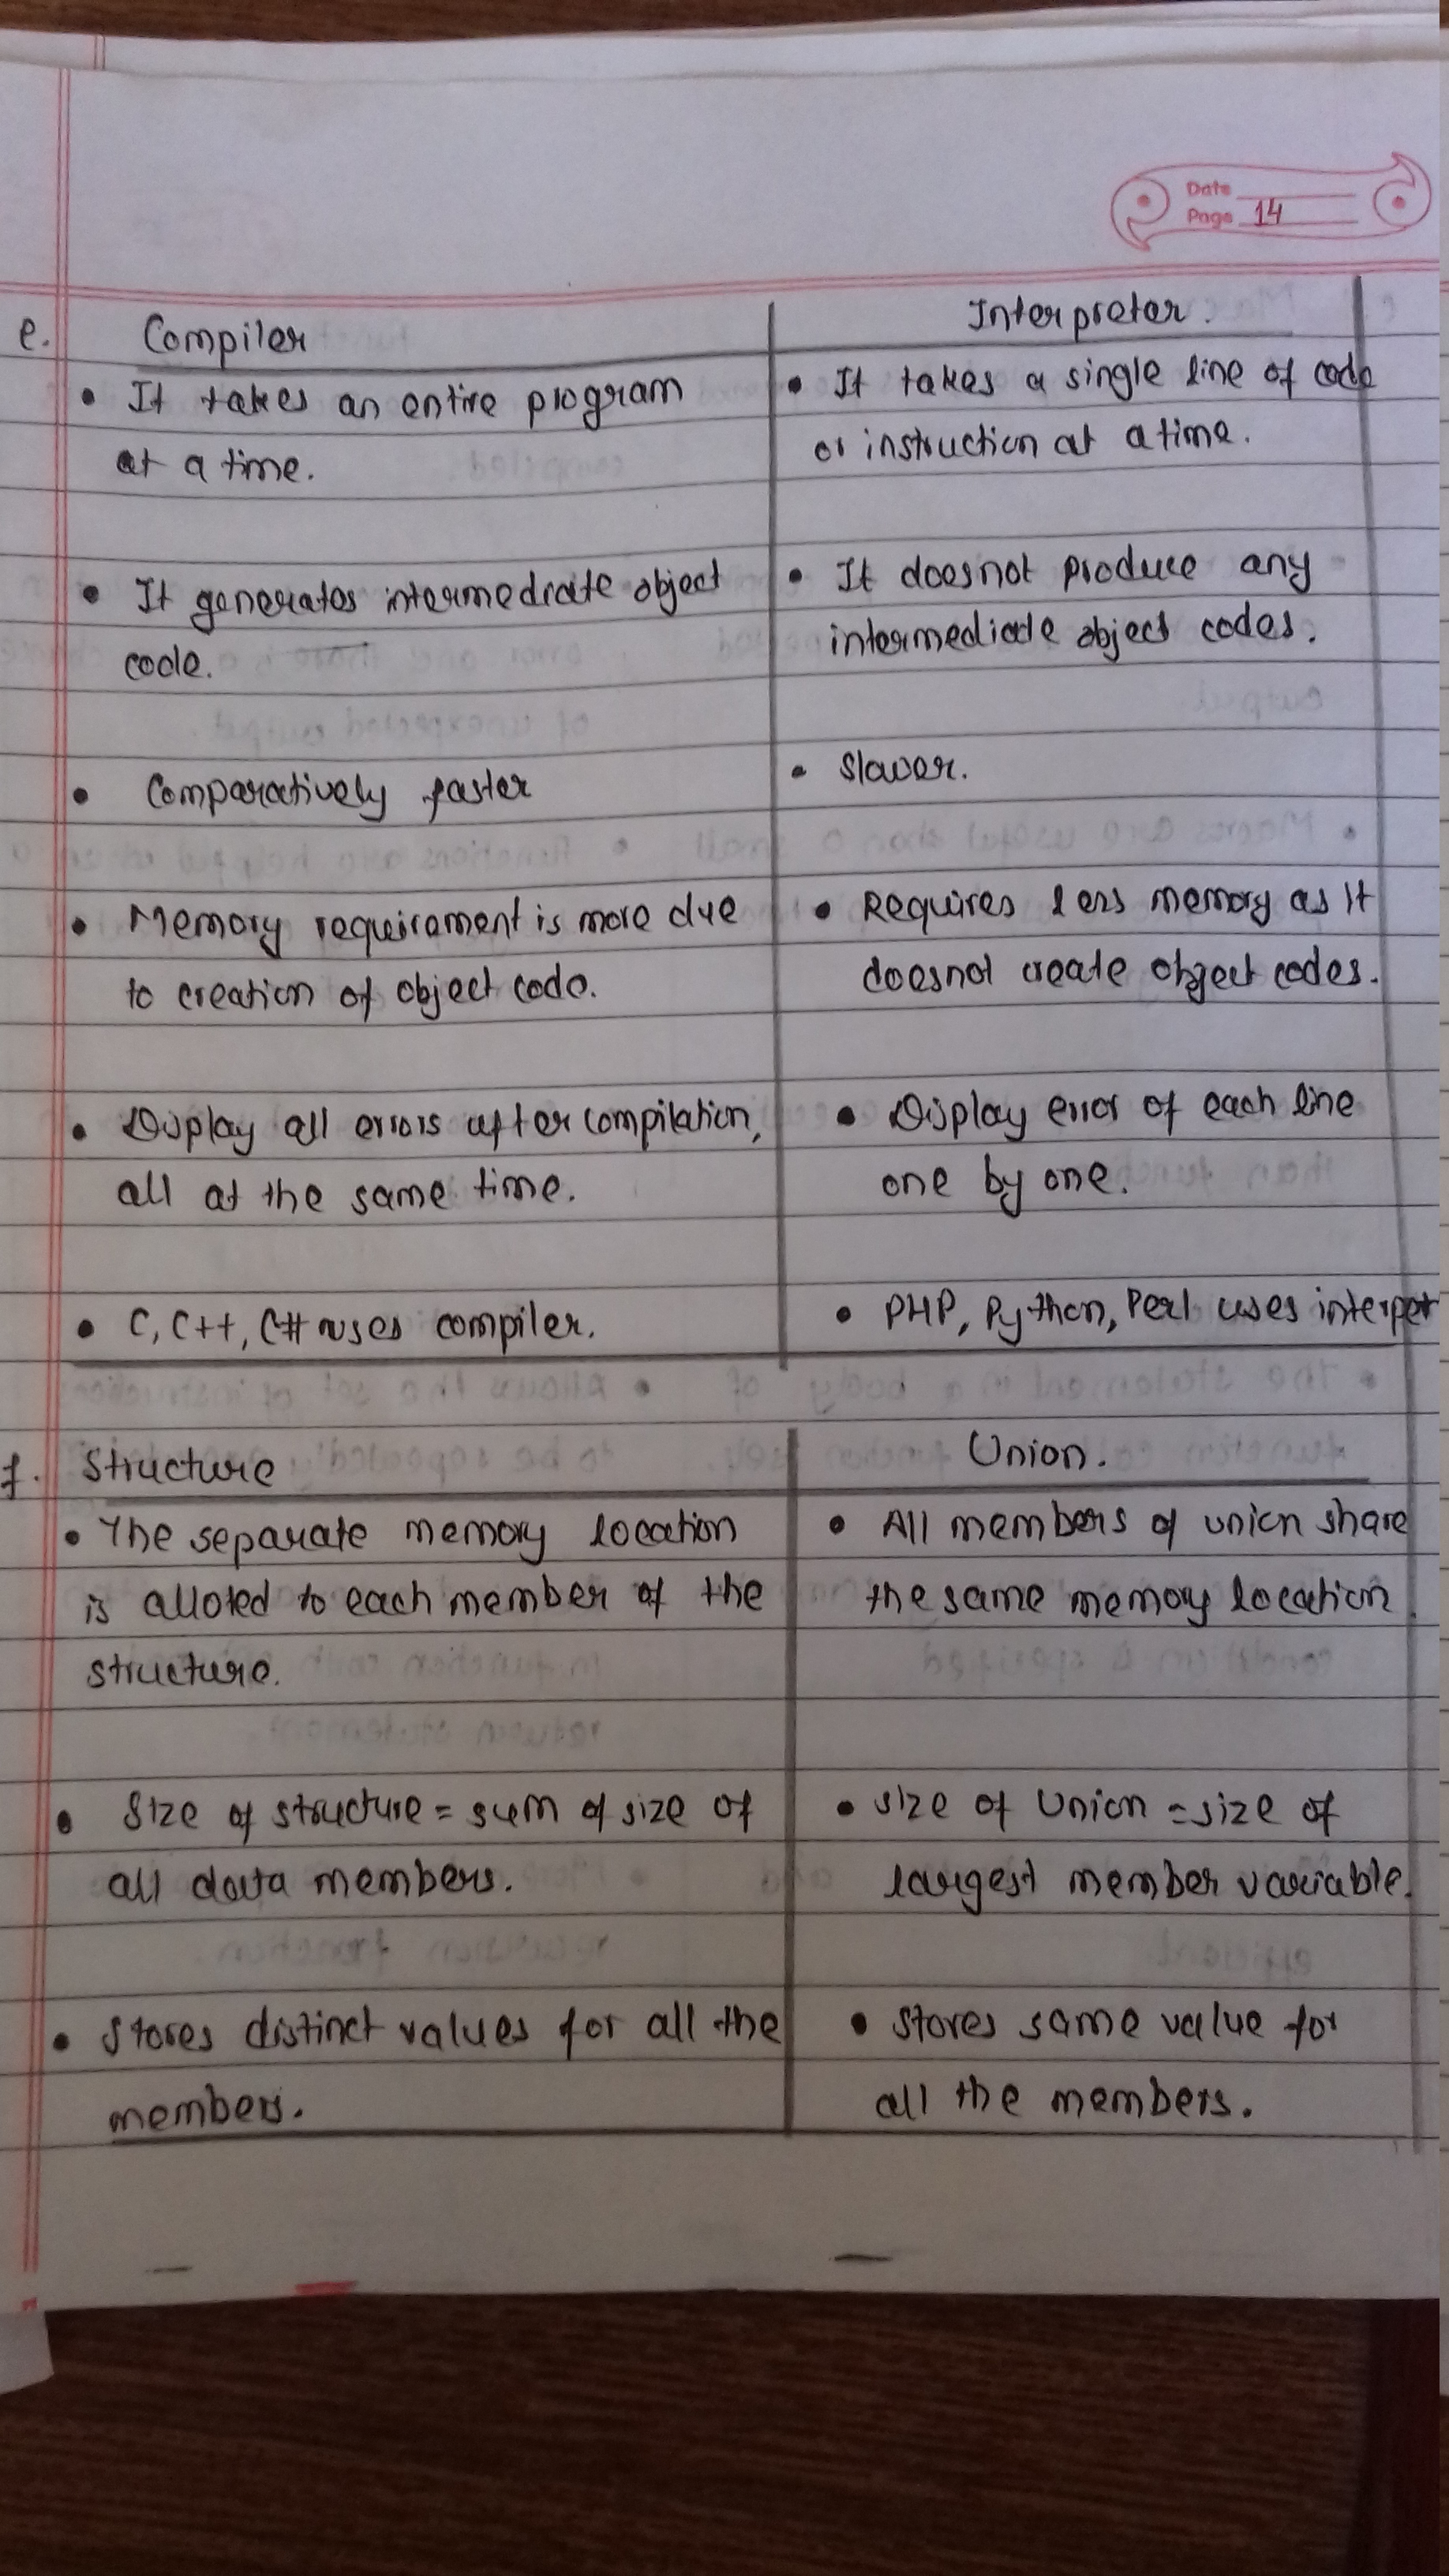 Date
Page 14
e. Compiler
Interpreter.
• It takes an entire program
at a time.
• It takes a single line of code
or instruction at a time.
• It generates intermediate object
code.
• It doesnot produce any
intermediate object codes.
• Comparatively faster
• Slower.
• Memory requirement is more due
to creation of object code.
• Requires less memory as it
doesnot create object codes.
• Display all errors after compilation,
all at the same time.
• Display error of each line
one by one.
• C, C++, C# uses compiler.
• PHP, Python, Perl uses interpet
f. Structure
Union.
• The separate memory location
is alloted to each member of the
structure.
• All members of union share
the same memory location.
• Size of structure = sum of size of
all data members.
• size of Union = size of
largest member variable.
• Stores distinct values for all the
members.
• Stores same value for
all the members.